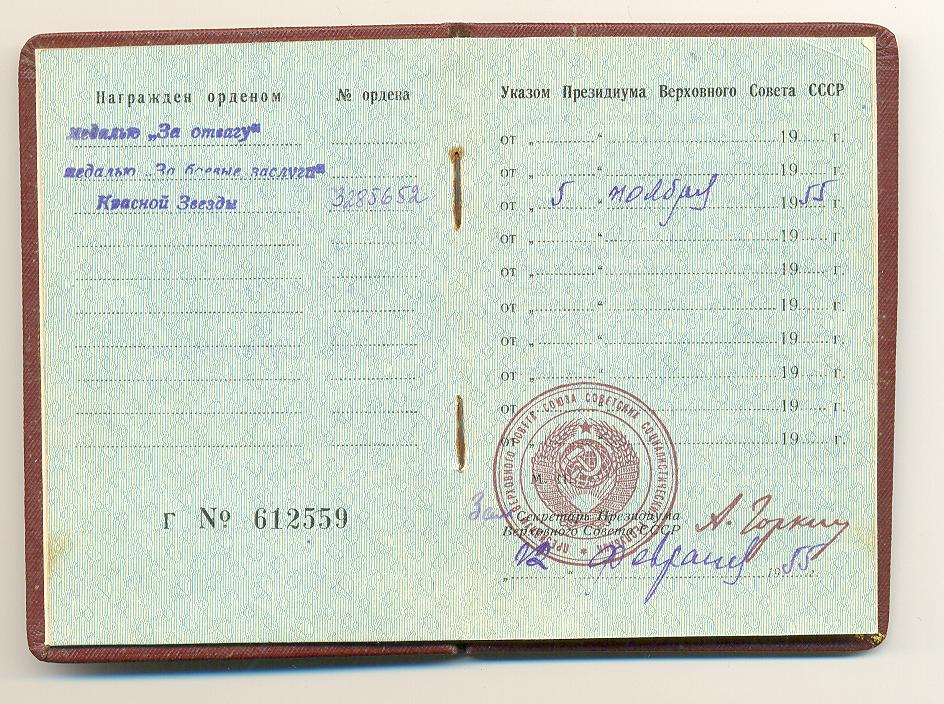 Награжден орденом № ордена
медалью „За отвагу“
медалью „За боевые заслуги“
Красной Звезды 3285652
г № 612559
Указом Президиума Верховного Совета СССР
от „ “ 19 г.
от „ “ 19 г.
от „ 5 “ ноября 1955 г.
от „ “ 19 г.
от „ “ 19 г.
от „ “ 19 г.
от „ “ 19 г.
от „ “ 19 г.
от „ “ 19 г.
от „ “ 19 г.
М. П.
Секретарь Президиума
Верховного Совета СССР
А. Горкин
„12“ февраля 1955 г.
ВЕРХОВНОГО СОВЕТА СОЮЗА СОВЕТСКИХ СОЦИАЛИСТИЧЕСКИХ